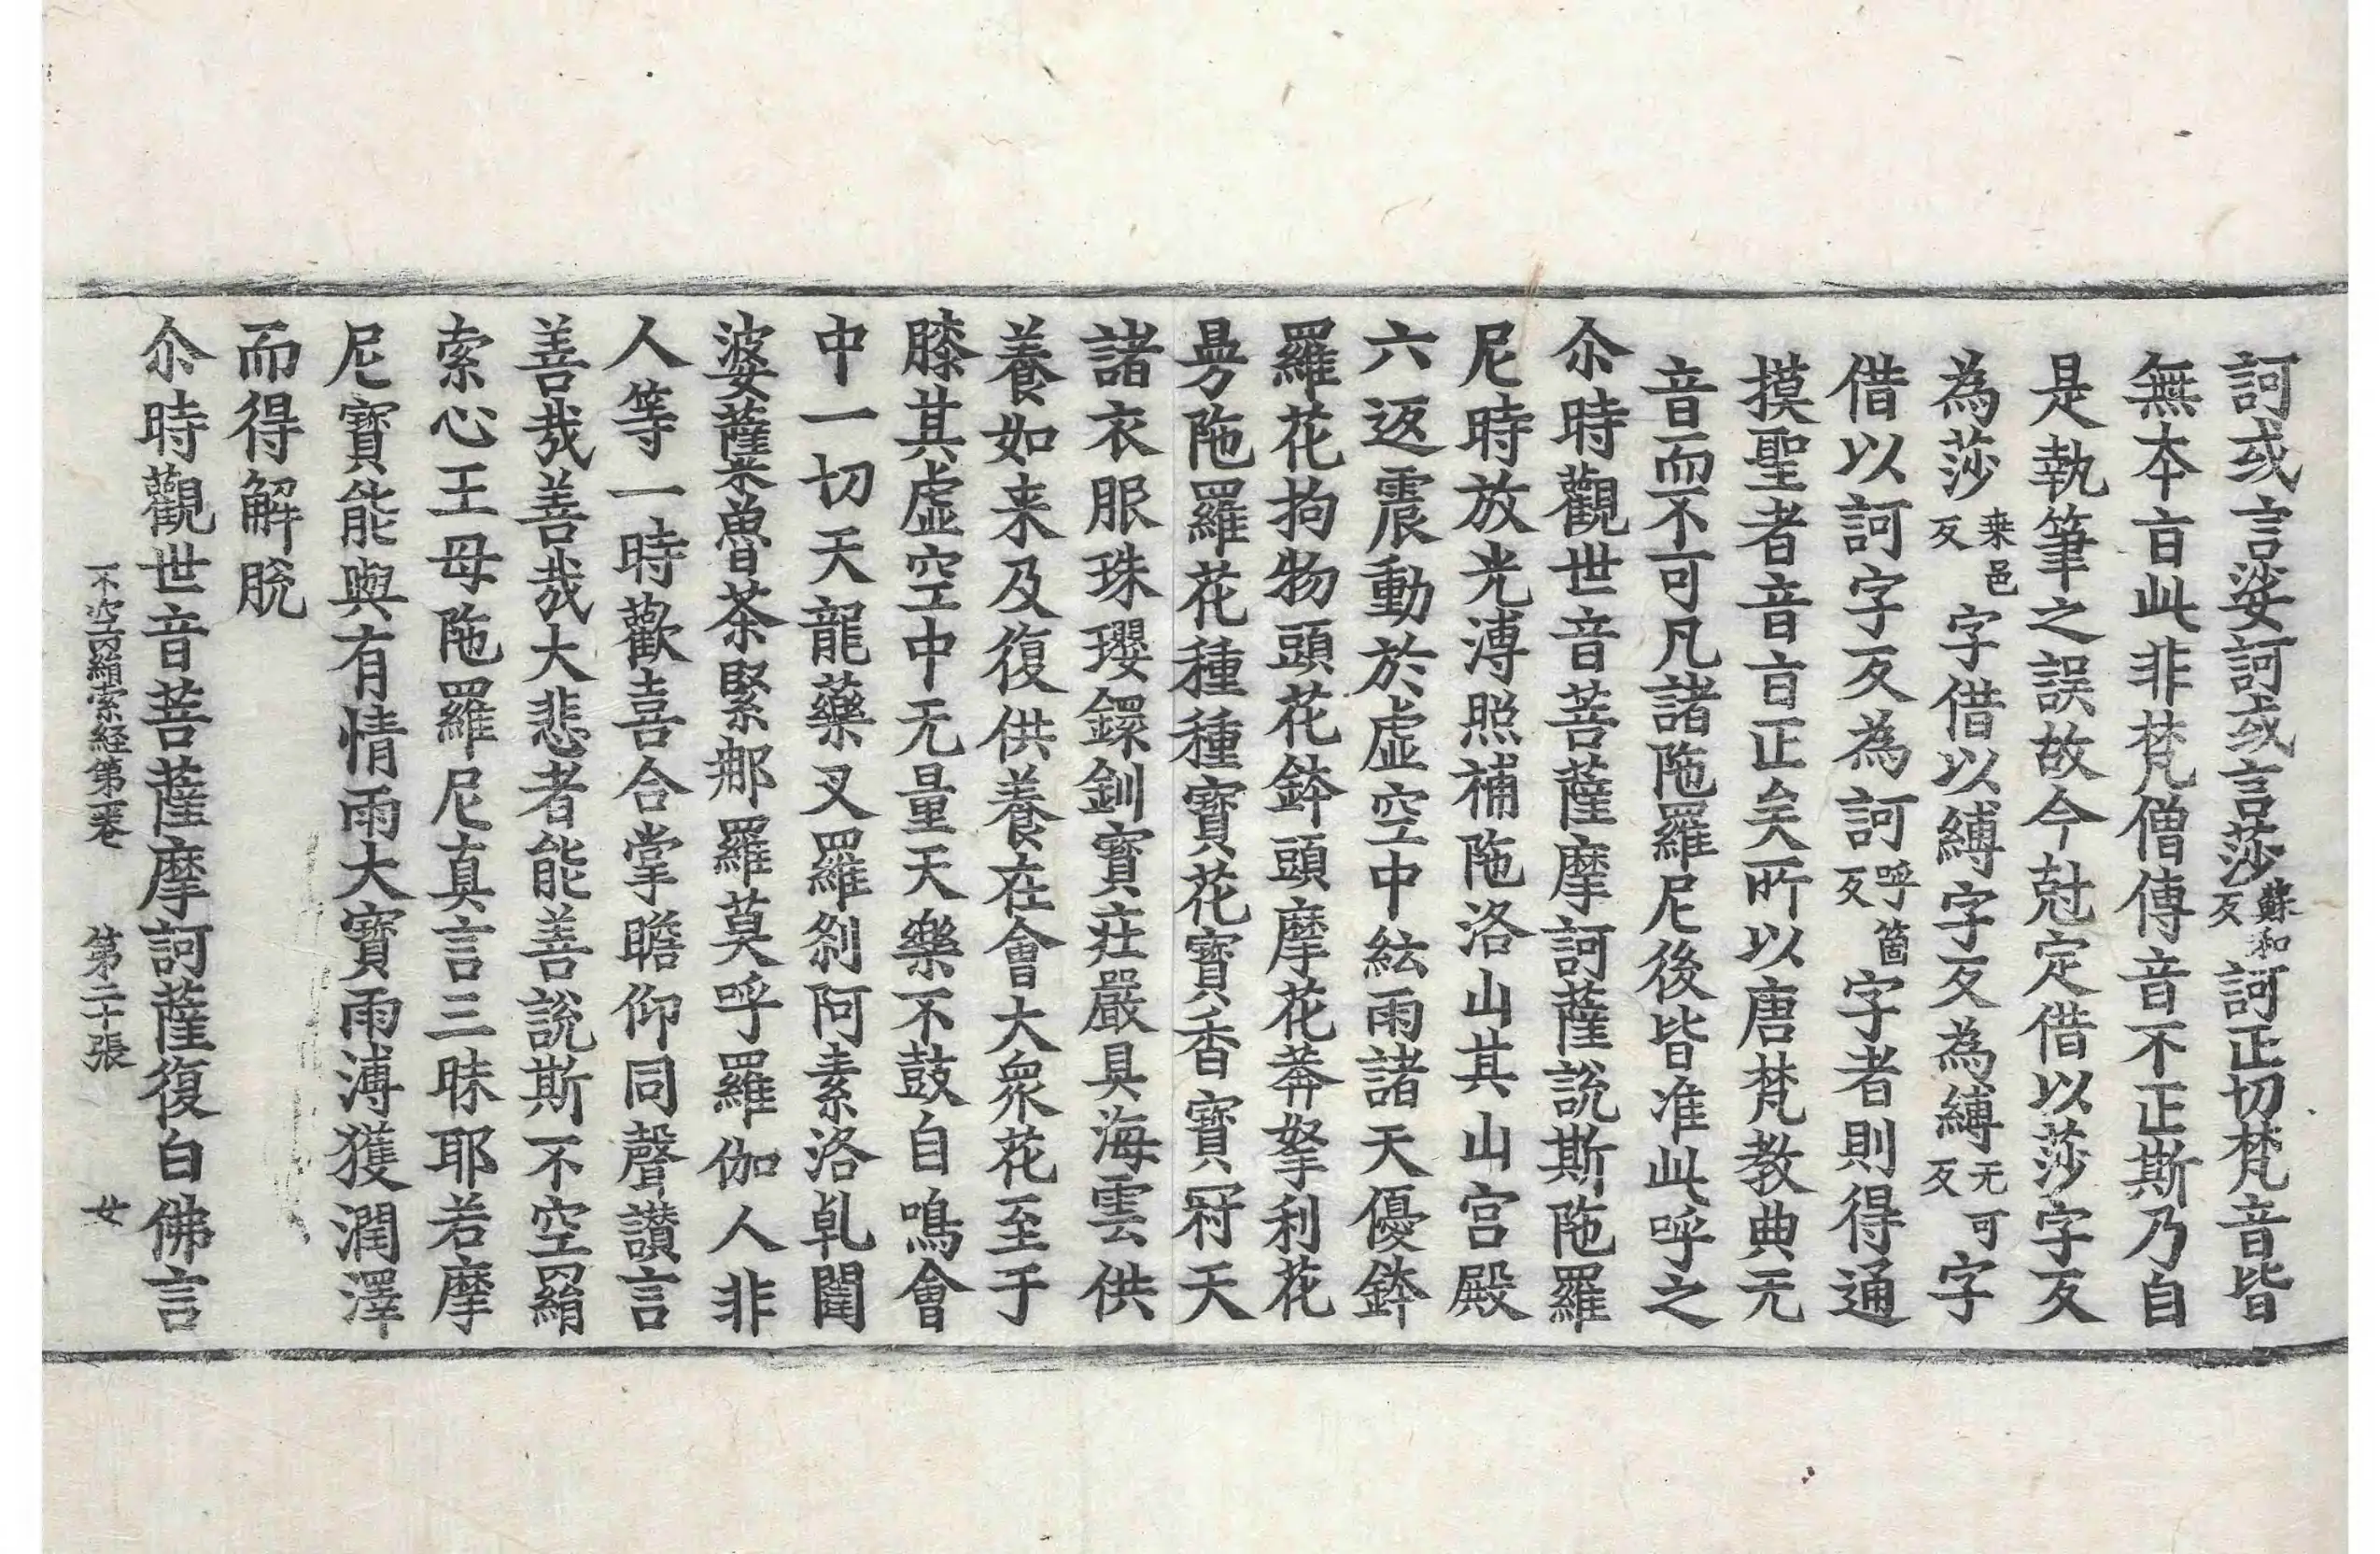 訶或言娑訶或言莎蘇和反訶正切梵音皆
無本音此非梵僧傳音不正斯乃自
是執筆之誤故今尅定借以莎字反
為莎桒邑反字借以縛字反為縛无可反字
借以訶字反為訶呼箇反字者則得通
摸聖者音音正矣所以唐梵教典无
音而不可凡諸陁羅尼後皆准此呼之
尒時觀世音菩薩摩訶薩說斯陁羅
尼時放光溥照補陁洛山其山宮殿
六返震動於虛空中紜雨諸天優鉢
羅花拘物頭花鉢頭摩花莾拏利花
曼陁羅花種種寶花寶香寶冠天
諸衣服珠瓔鐶釧寶莊嚴具海雲供
養如来及復供養在會大衆花至于
膝其虛空中无量天樂不鼓自鳴會
中一切天龍藥叉羅剎阿素洛乹闥
婆蘖魯茶緊那羅莫呼羅伽人非
人等一時歡喜合掌瞻仰同聲讃言
善哉善哉大悲者能善說斯不空羂
索心王母陁羅尼真言三昧耶若摩
尼寶能與有情雨大寶雨溥獲潤澤
而得解脫
尒時觀世音菩薩摩訶薩復白佛言
不空羂索経第一卷 第二十張 女